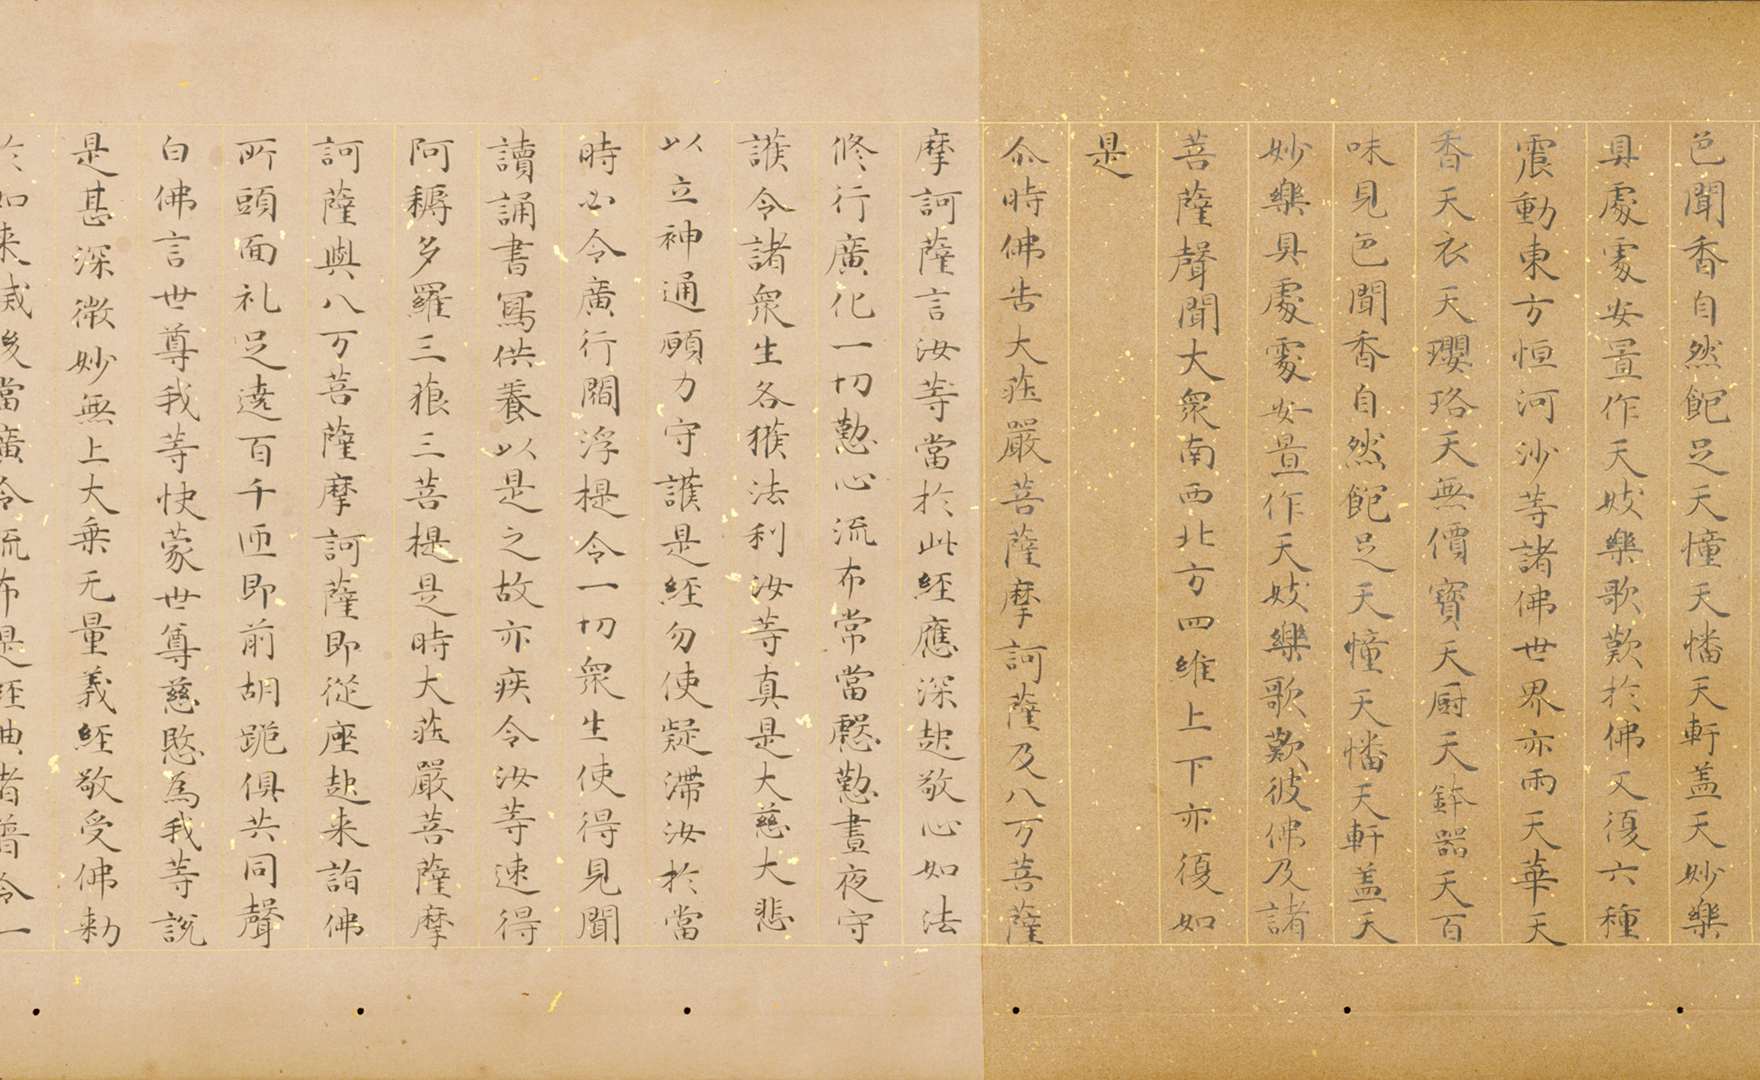 色聞香自然飽足天幢天幡天軒盖天妙樂
具處處安置作天妓樂歌歎於佛又復六種
震動東方恒河沙等諸佛世界亦雨天華天
香天衣天瓔珞天無價寶天厨天鉢器天百
味見色聞香自然飽足天幢天幡天軒盖天
妙樂具處處安置作天妓樂歌歎彼佛及諸
菩薩聲聞大衆南西北方四維上下亦復如
是
尒時佛告大莊嚴菩薩摩訶薩及八万菩薩
摩訶薩言汝等當於此経應深起敬心如法
修行廣化一切懃心流布常當慇懃晝夜守
護令諸衆生各獲法利汝等真是大慈大悲
以立神通願力守護是経勿使疑滯汝於當
時必令廣行閻浮提令一切衆生使得見聞
讀誦書寫供養以是之故亦疾令汝等速得
阿耨多羅三藐三菩提是時大莊嚴菩薩摩
訶薩與八万菩薩摩訶薩即從座起来詣佛
所頭面礼足遶百千匝即前胡跪俱共同聲
白佛言世尊我等快蒙世尊慈愍為我等說
是甚深微妙無上大乗无量義経敬受佛勅
於如来滅後當廣令流布是経典者普令一